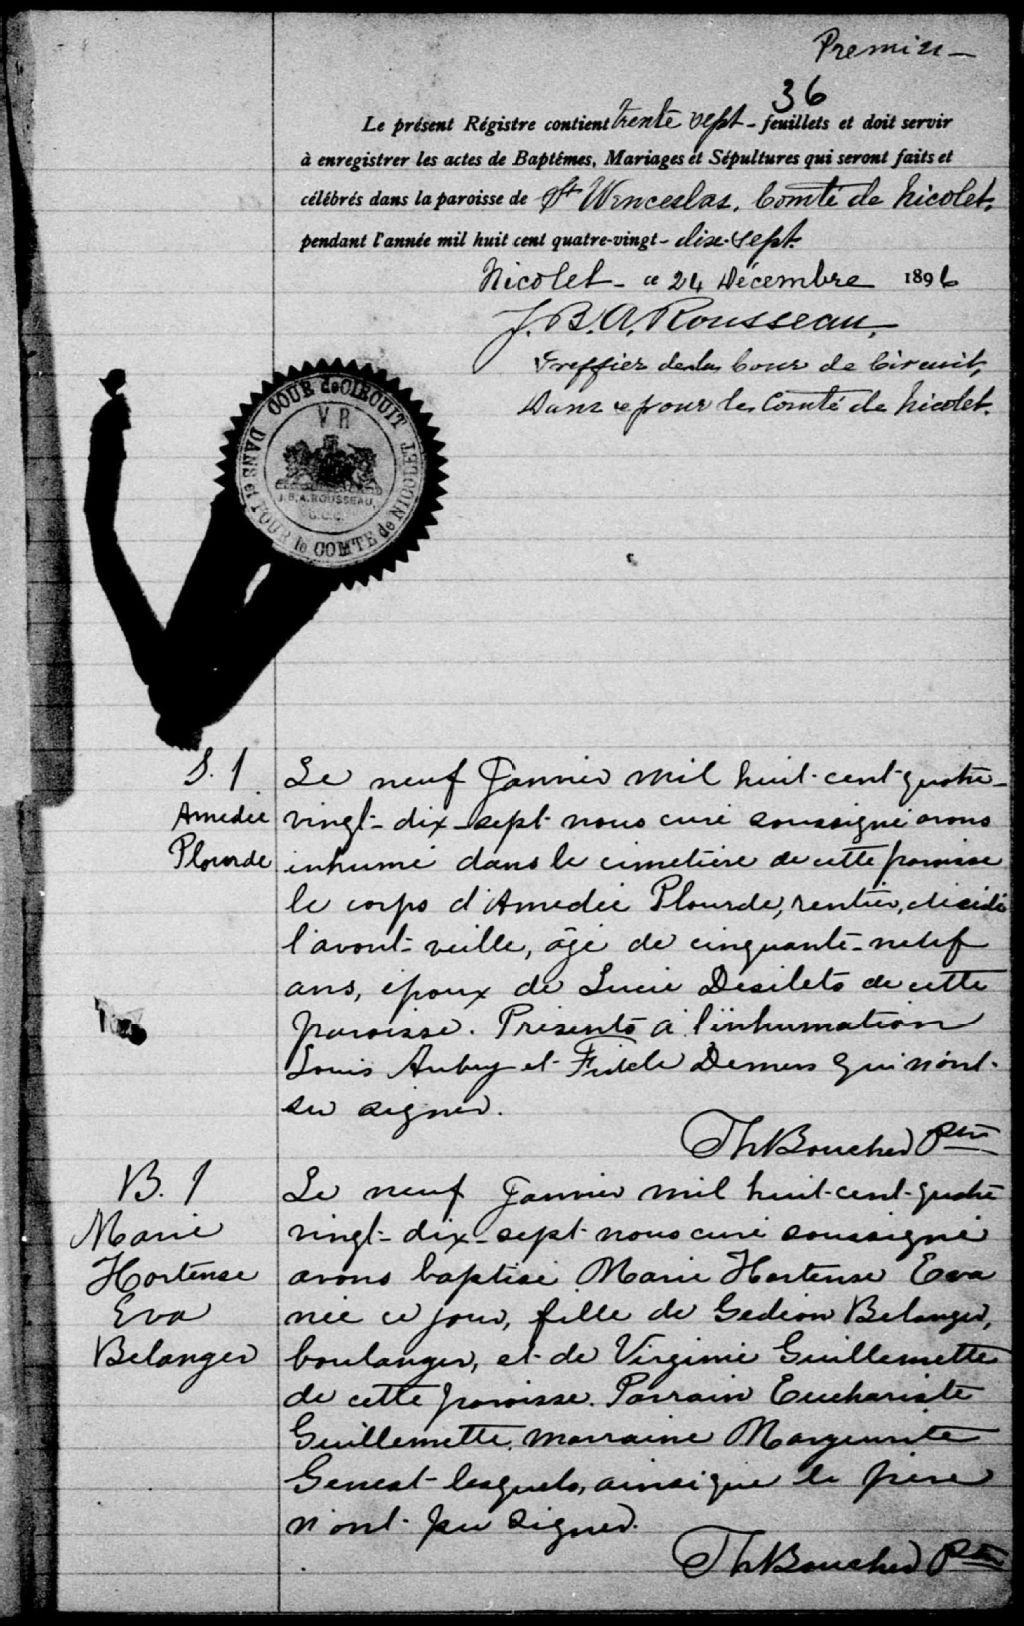 Premier
36
Le présent Régistre contient trente sept - feuillets et doit servir
à enregistrer les actes de Baptêmes, Mariages et Sépultures qui seront faits et
célébrés dans la paroisse de St Wenceslas, Comté de Nicolet,
pendant l'année mil huit cent quatre-vingt-dix-sept.
Nicolet - ce 24 Décembre 1896
J. B. A. Rousseau,
Greffier de la Cour de Circuit,
Dans et pour le Comté de Nicolet.
COUR de CIRCUIT
DANS et POUR le COMTE de NICOLET
V R
J. B. A. ROUSSEAU,
C.C.C.
S. 1
Amedée
Plourde
Le neuf Janvier mil huit-cent-quatre-
vingt-dix-sept nous curé soussigné avons
inhumé dans le cimetière de cette paroisse
le corps d'Amedée Plourde, rentier, décédé
l'avant-veille, âgé de cinquante-neuf
ans, époux de Lucie Desilets de cette
paroisse. Présents à l'inhumation
Louis Aubry et Fidèle Demers qui n'ont
su signer.
Th Boucher Ptre
B. 1
Marie
Hortense
Eva
Belanger
Le neuf Janvier mil huit-cent-quatre
vingt-dix-sept nous curé soussigné
avons baptisé Marie Hortense Eva
née ce jour, fille de Gedéon Belanger,
boulanger, et de Virginie Guillemette
de cette paroisse. Parrain Euchariste
Guillemette, marraine Marguerite
Genest lesquels, ainsi que le père
n'ont pu signer.
Th Boucher Ptre